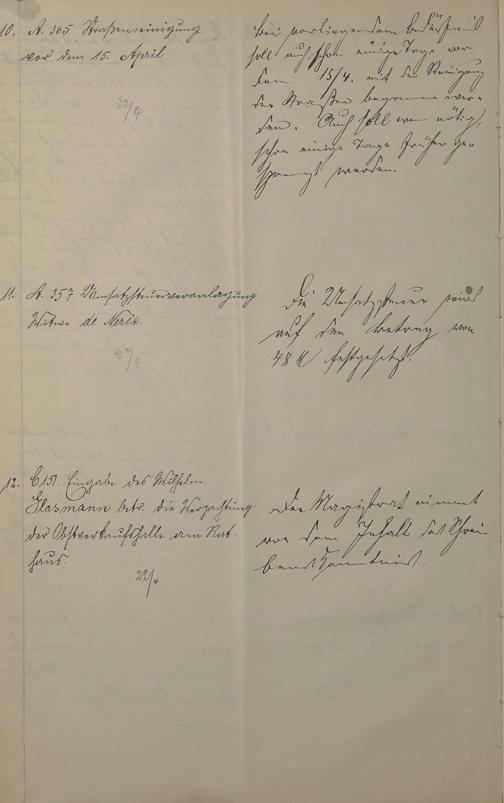 10. A. 365 Straßenreinigung
vor dem 15. April
22/4
Bei vorliegendem Bedürfnis
soll auch schon einige Tage vor
dem 15/4. mit der Reinigung
der Straßen begonnen wer-
den. Auch soll wenn nötig,
schon einige Tage früher ge-
sprengt werden.
11. A. 357 Umsatzsteuerveranlagung
Witwe de Neris.
27/4
Die Umsatzsteuer wird
auf den Betrag von
48 M festgesetzt.
12. Eingabe des Wilhelm
Glasmann betr. die Verpachtung
der Obstverkaufshalle am Rat-
haus.
22/4
Der Magistrat nimmt
von dem Inhalt des Schrei-
bens Kenntnis.